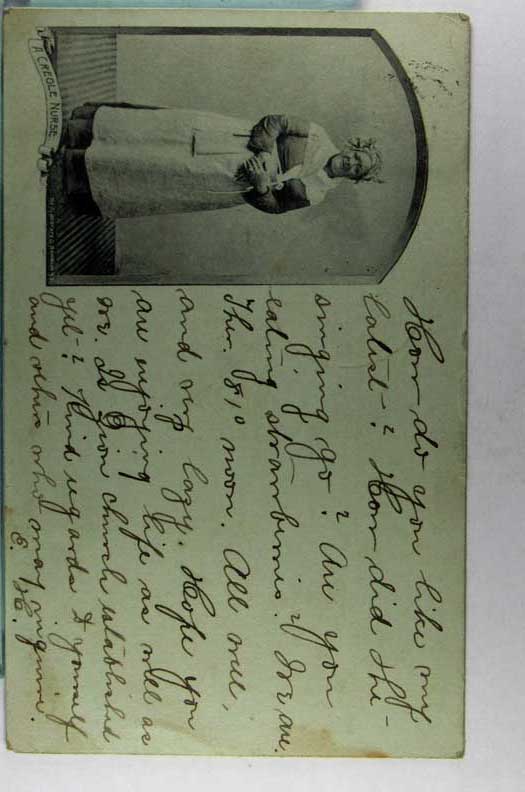 A CREOLE NURSE
How do you like my
latest? How did the
singing go? Are you
eating strawberries? We are.
Ther. 80 noon. All well,
and very lazy. Hope you
are enjoying life as well as
we. Is Zion church established
yet? Kind regards to yourself
and others who may inquire.
E. H.